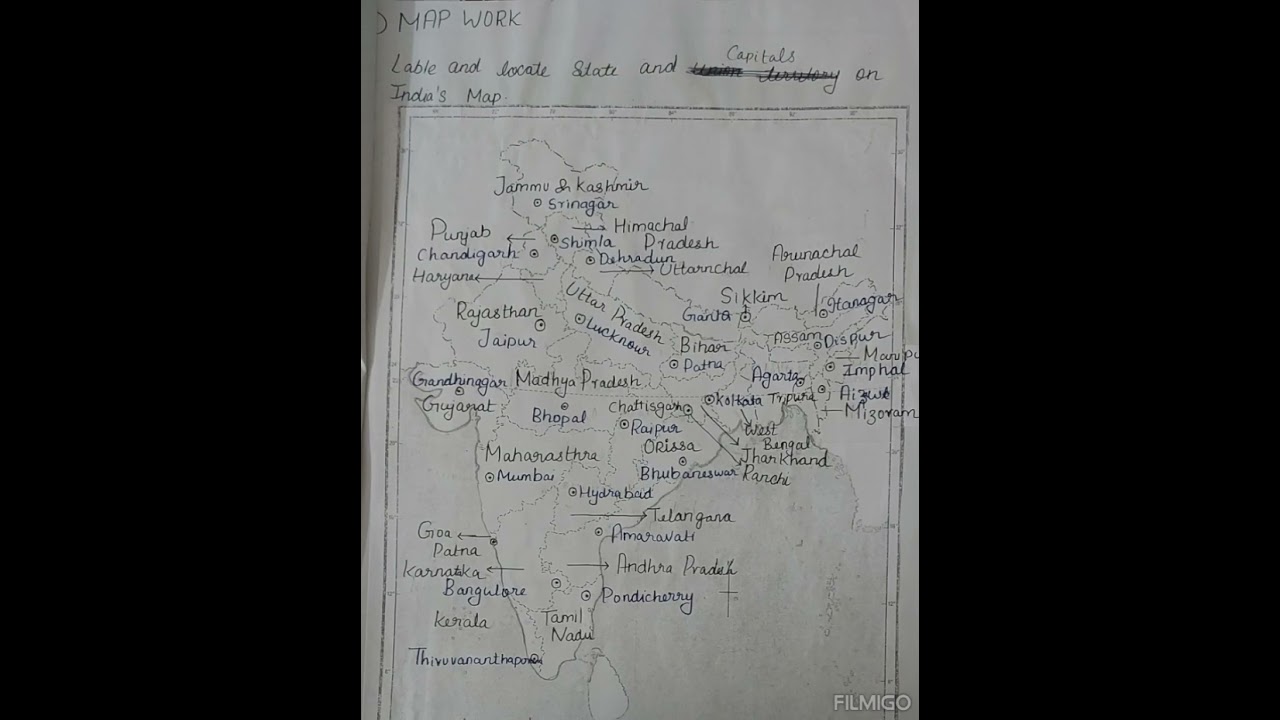 ) MAP WORK
Lable and locate State and Capitals on
India's Map.
Jammu & Kashmir
Srinagar
Himachal
Pradesh
Punjab
Shimla
Chandigarh
Dehradun
Uttarnchal
Haryana
Arunachal
Pradesh
Itanagar
Sikkim
Rajasthan
Jaipur
Uttar Pradesh
Lucknour
Bihar
Patna
Assam
Dispur
Manipu
Imphal
Agarta
Tripura
Mizoram
Gandhinagar
Gujarat
Madhya Pradesh
Bhopal
Chattisgarh
Raipur
Kolkata
West
Bengal
Jharkhand
Ranchi
Orissa
Bhubaneswar
Maharasthra
Mumbai
Hydrabad
Telangana
Amaravati
Goa
Patna
Karnataka
Bangulore
Andhra Pradesh
Pondicherry
Kerala
Tamil
Nadu
FILMIGO